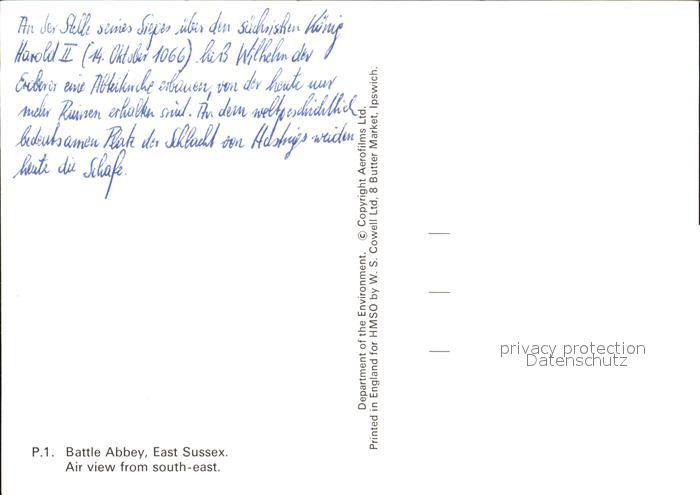 An der Stelle seines Sieges über den sächsischen König
Harold II (14. Oktober 1066) ließ Wilhelm der
Eroberer eine Abteikirche erbauen, von der heute nur
mehr Ruinen erhalten sind. An dem weltgeschichtlich
bedeutsamen Platz der Schlacht von Hastings weiden
heute die Schafe.
Department of the Environment. © Copyright Aerofilms Ltd.
Printed in England for HMSO by W. S. Cowell Ltd, 8 Butter Market, Ipswich.
privacy protection
Datenschutz
P.1. Battle Abbey, East Sussex.
Air view from south-east.